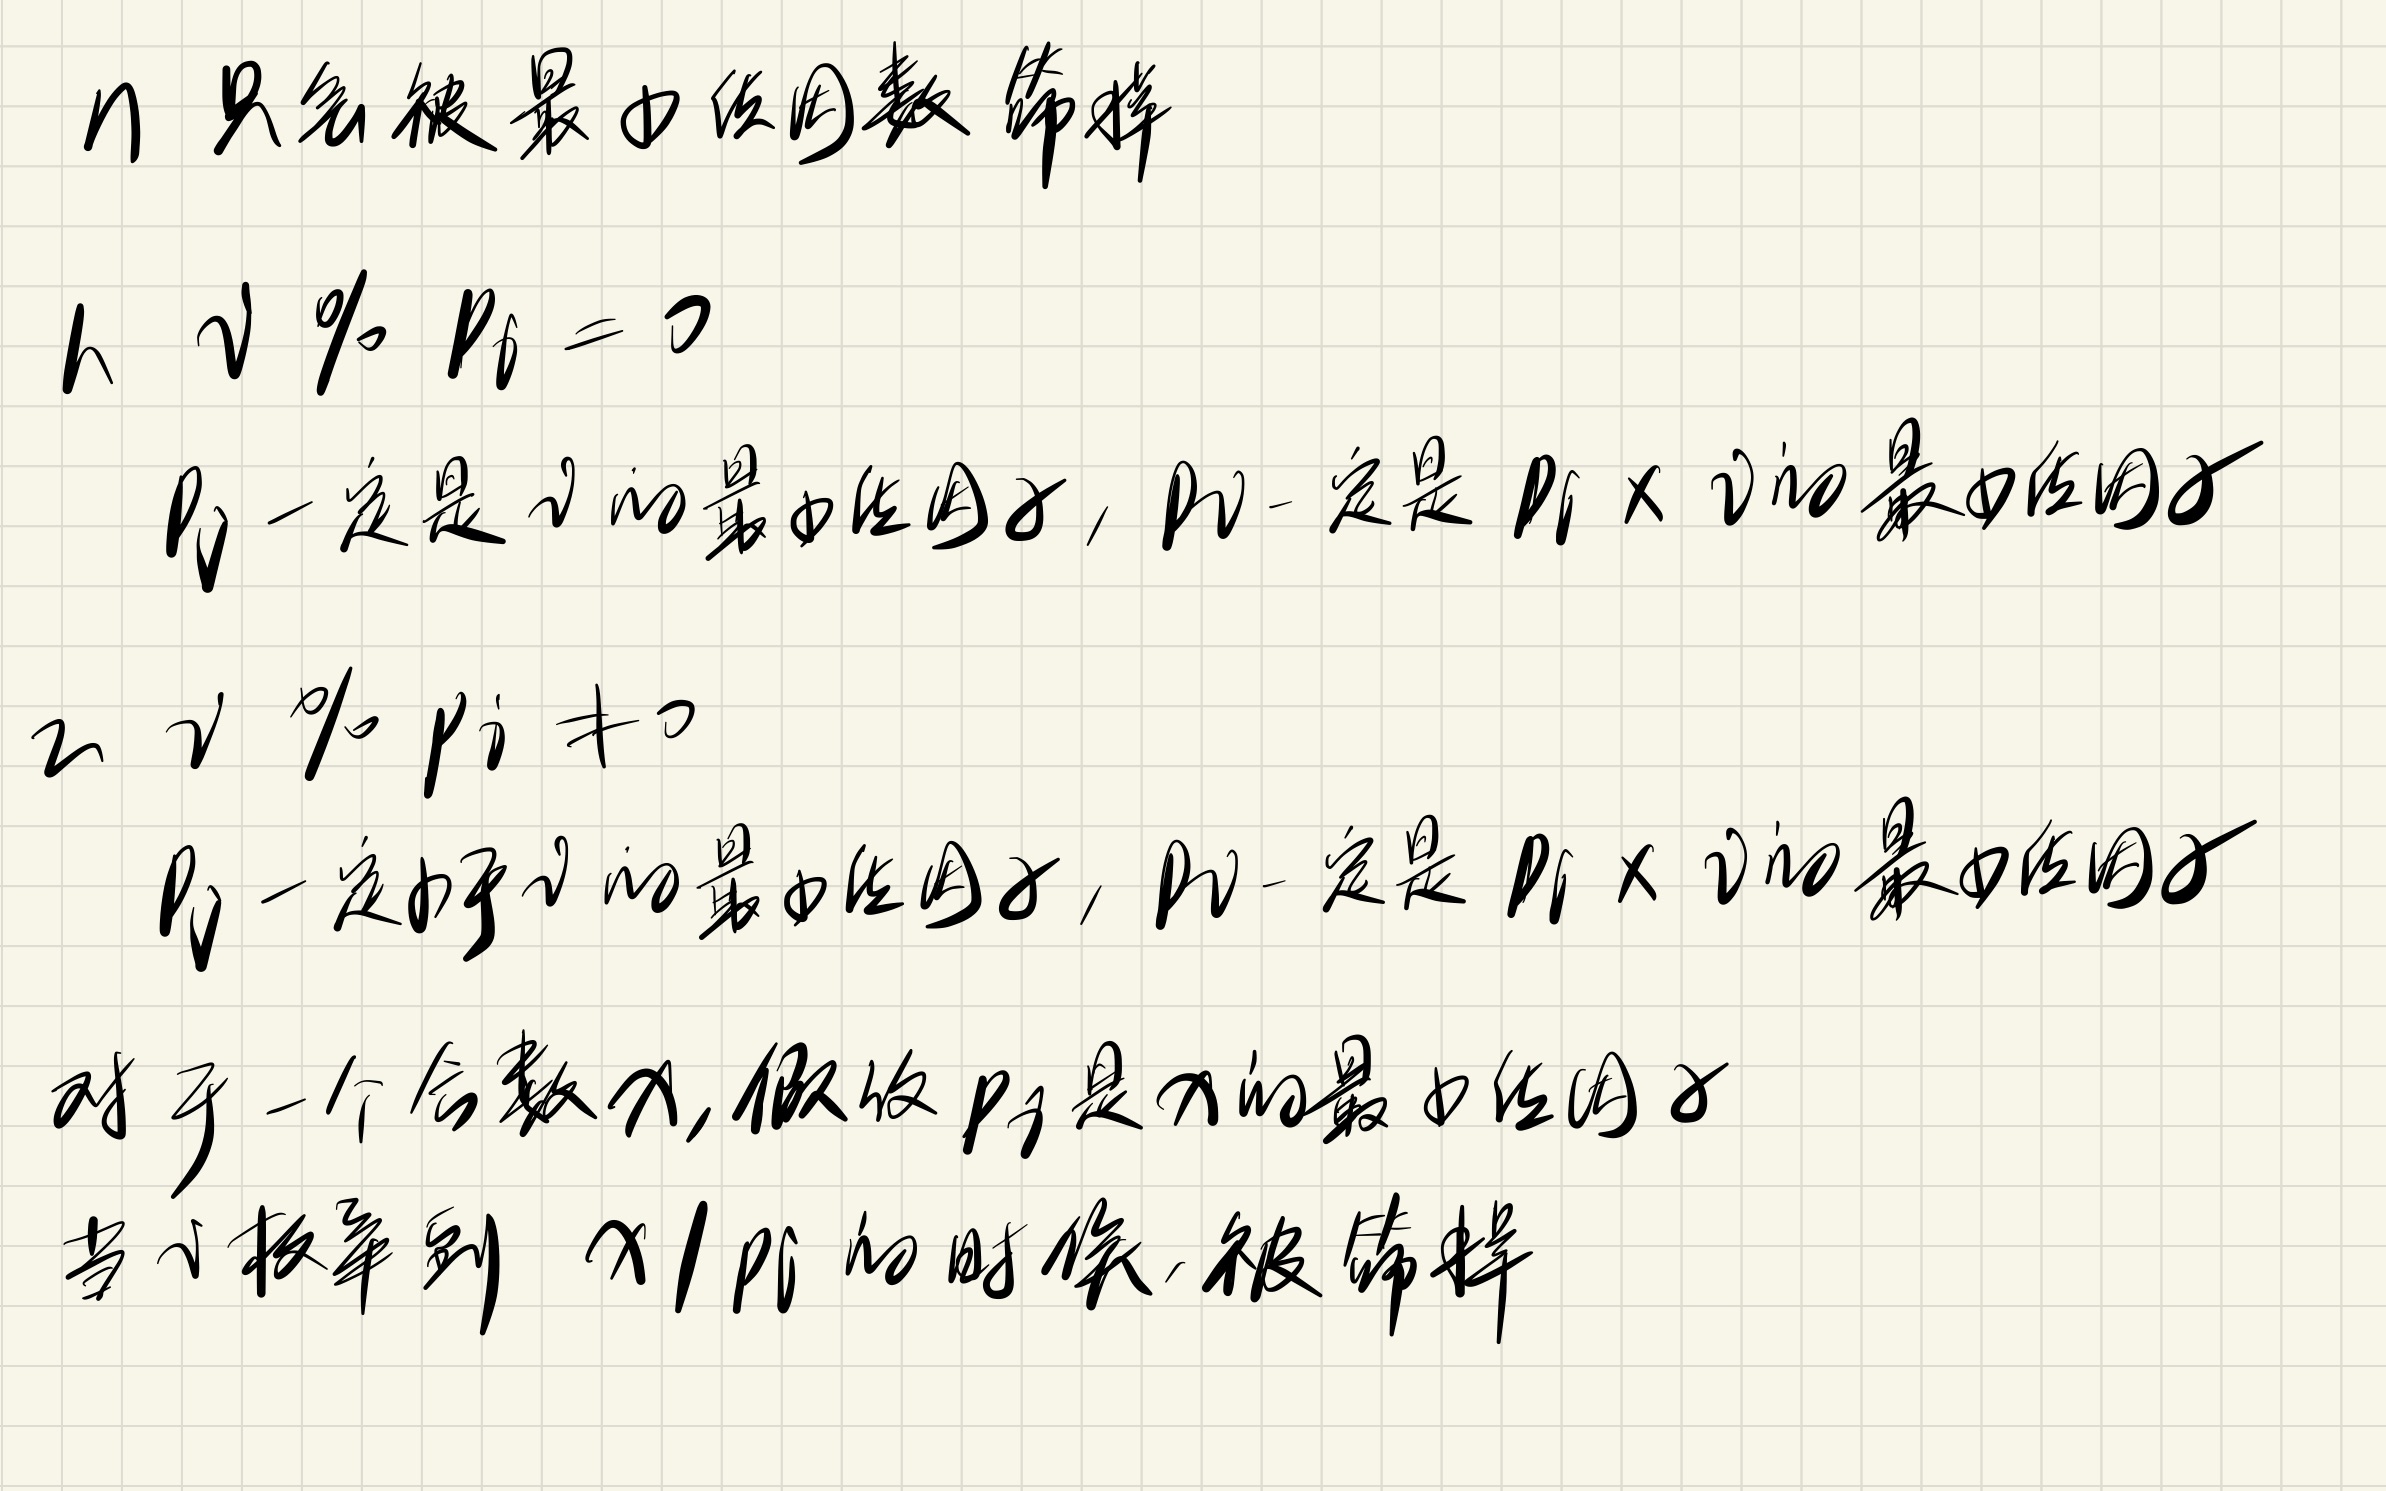 n 只会被最小质因数筛掉
1. i % pj = 0
pj 一定是 i 的最小质因子, pj 一定是 pj × i 的最小质因子
2 i % pj ≠ 0
pj 一定小于 i 的最小质因子, pj 一定是 pj × i 的最小质因子
对于一个合数 x, 假设 pj 是 x 的最小质因子
当 i 枚举到 x / pj 的时候, 被筛掉